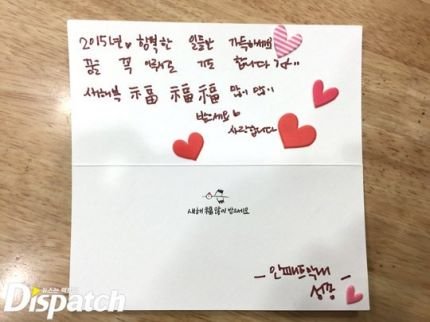 2015년 행복한 일들만 가득하세요
꿈 꼭 이뤄지길 기도 합니다
새해복 福 福 福 많이 많이
받으세요
사랑합니다
새해 福 많이 받으세요
성종
뉴스는 팩트다
Dispatch